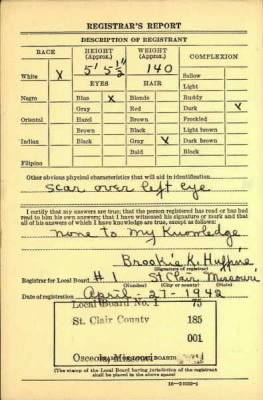 REGISTRAR'S REPORT
DESCRIPTION OF REGISTRANT
RACE HEIGHT (Approx.) WEIGHT (Approx.) COMPLEXION
White X 5' 5½" 140 Sallow
EYES HAIR Light
Negro Blue X Blonde Ruddy
Gray Red Dark X
Oriental Hazel Brown Freckled
Brown Black Light brown
Indian Black Gray X Dark brown
Bald Black
Filipino
Other obvious physical characteristics that will aid in identification
Scar over left eye
I certify that my answers are true; that the person registered has read or has had
read to him his own answers; that I have witnessed his signature or mark and that
all of his answers of which I have knowledge are true, except as follows:
none to my Knowledge
Brookie K. 
(Signature of registrar)
Registrar for Local Board #1 St Clair Missouri
(Number) (City or county) (State)
Date of registration April - 27 - 1942
Local Board No. 1 75
St. Clair County 185
001
Osceola, Missouri
(The stamp of the Local Board having jurisdiction of the registrant
shall be placed in the above space)